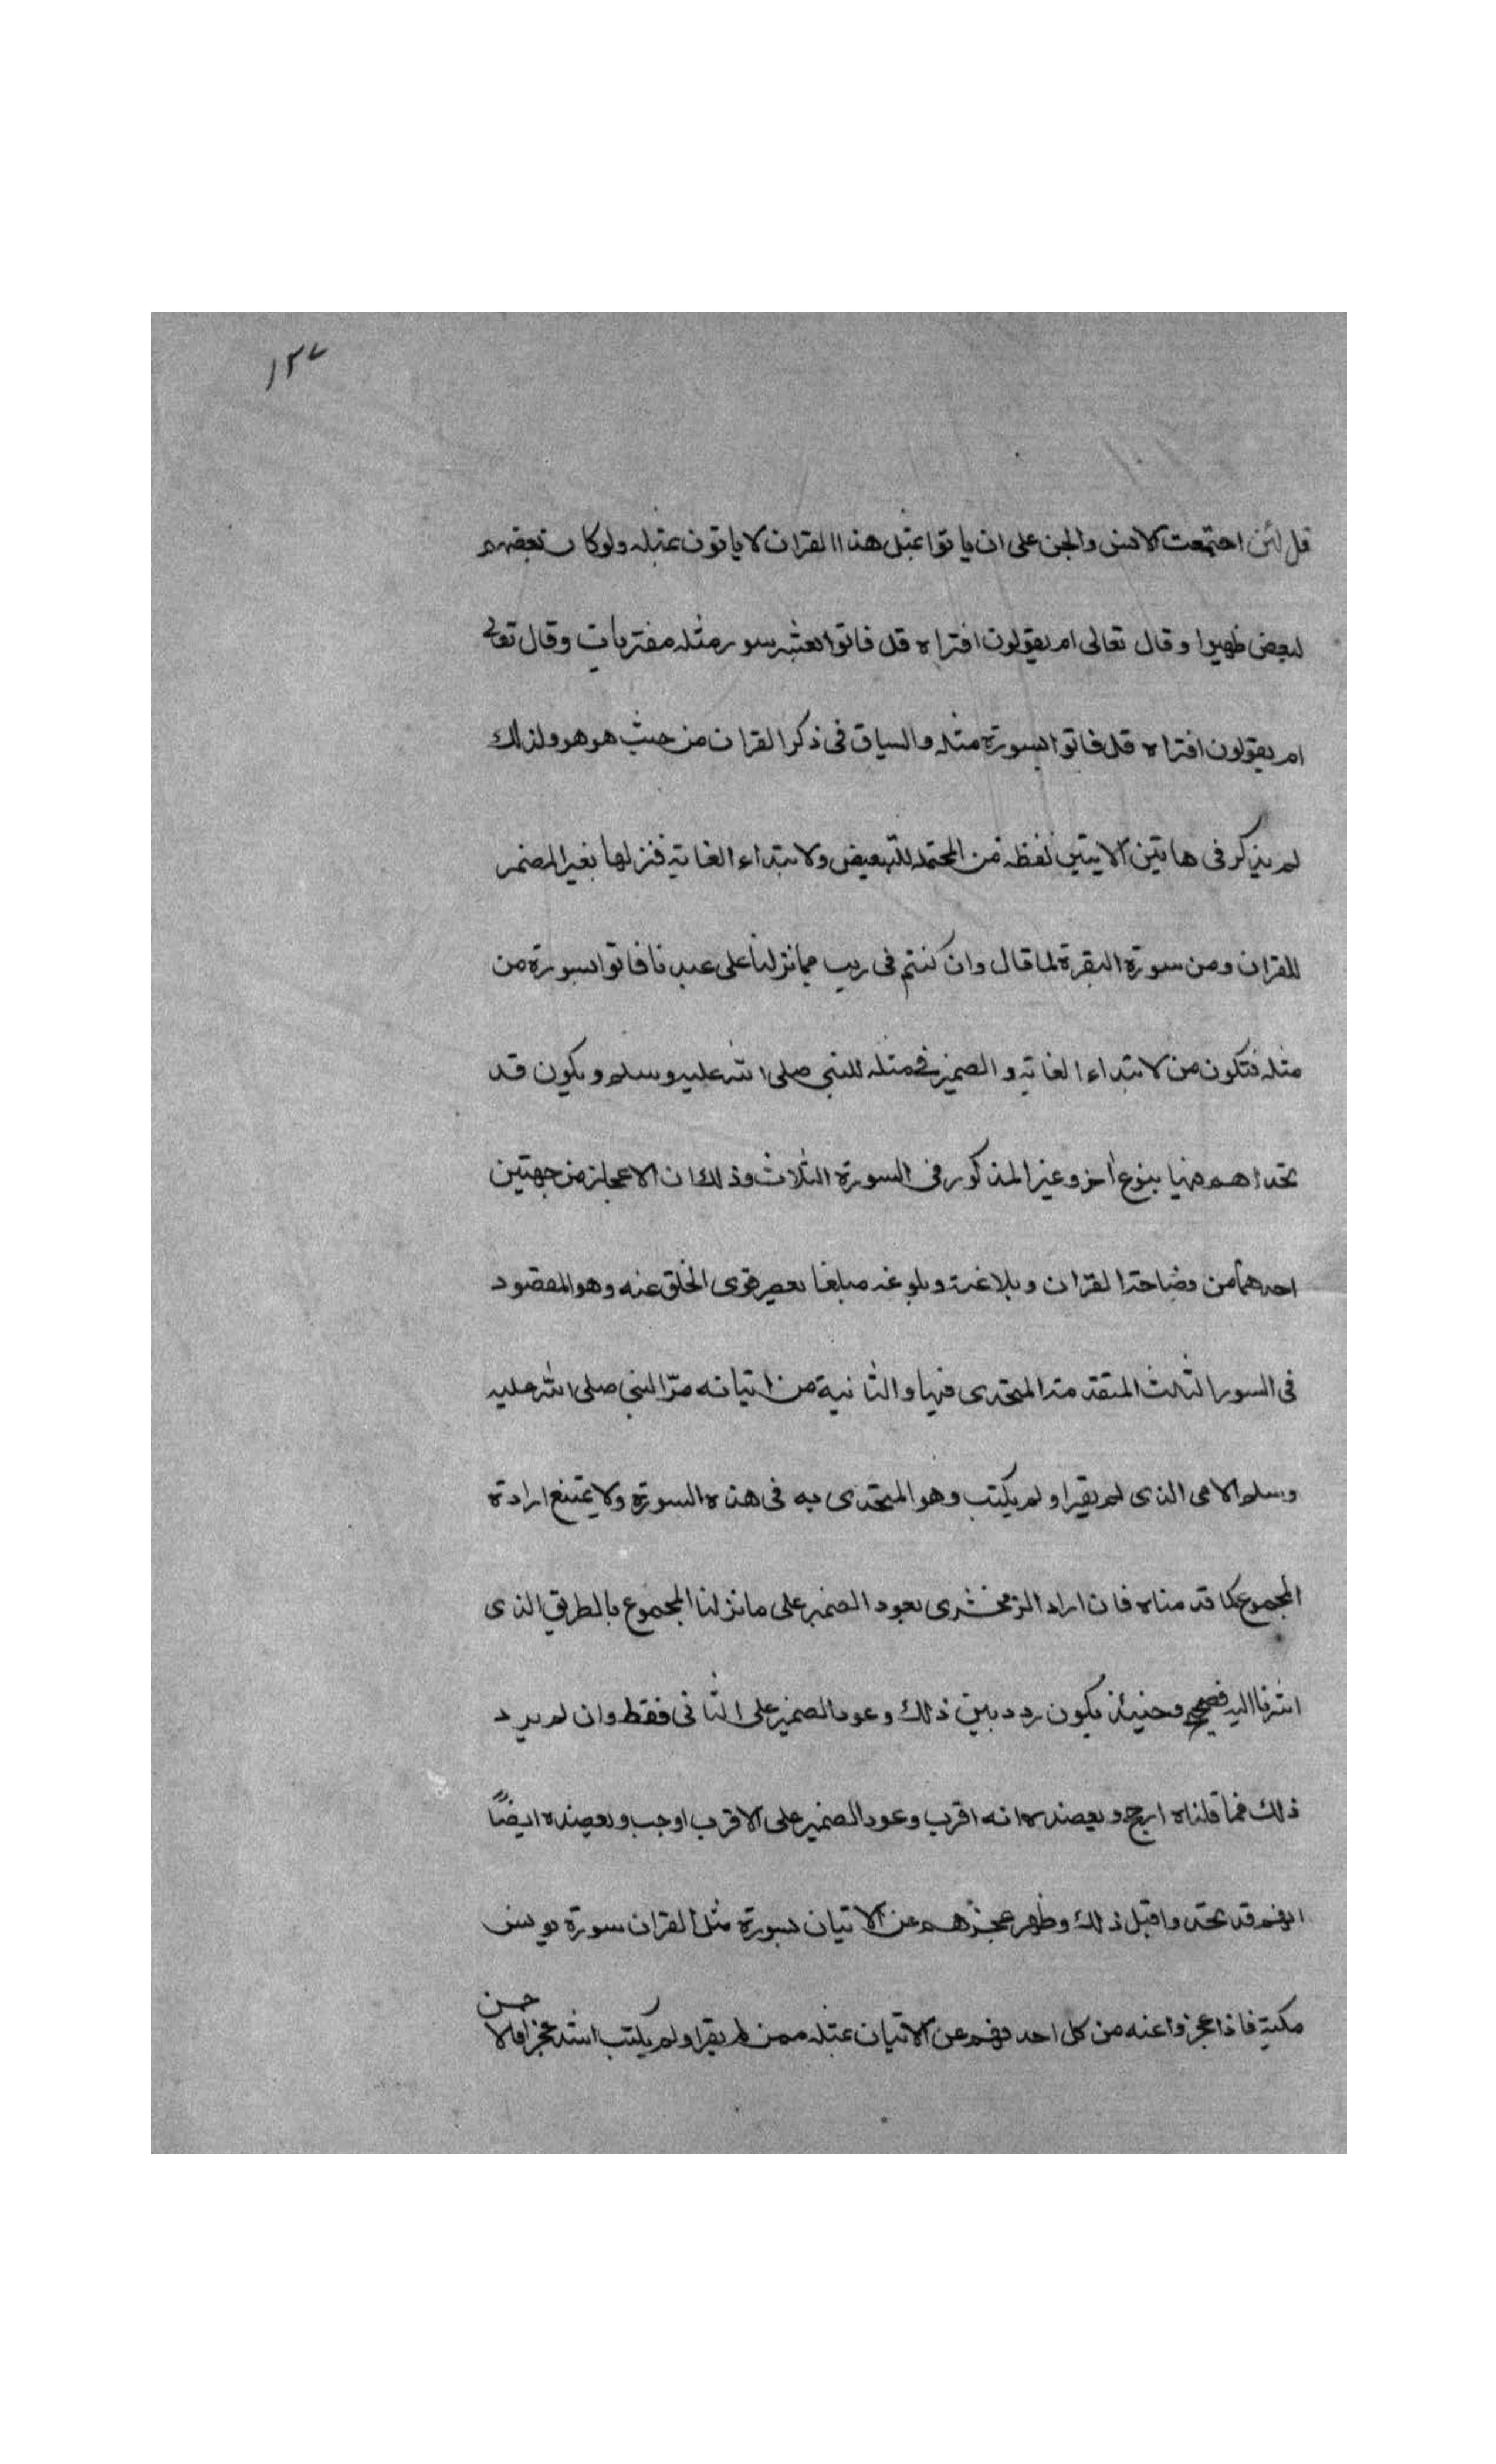 ١٢٧
قل لئن اجتمعت الانس والجن على ان ياتوا بمثل هذا القران لا ياتون بمثله ولو كان بعضهم
لبعض ظهيرا وقال تعالى ام يقولون افتراه قل فاتوا بعشر سور مثله مفتريات وقال تعالى
ام يقولون افتراه قل فاتوا بسورة مثله والسياق فى ذكر القران من حيث هو هو ولذلك
لم يذكر فى هاتين الايتين لفظه من المحتمله للتبعيض ولابتداء الغاية فنزلها بغير المضمر
للقران ومن سورة البقرة لما قال وان كنتم فى ريب مما نزلنا على عبدنا فاتوا بسورة من
مثله فتكون من لابتداء الغاية والضمير فى مثله للنبى صلى الله عليه وسلم ويكون قد
تحداهم فيها بنوع أخر وغير المذكور فى السورة الثلاث وذلك ان الاعجاز من جهتين
احدهما من فصاحة القران وبلاغته وبلوغه مبلغا تعصر قوى الخلق عنه وهو المقصود
فى السور الثلث المتقدمة المتحدى فيها والثانية من اتيانه من النبى صلى الله عليه
وسلم الامى الذى لم يقرا ولم يكتب وهو المتحدى به فى هذه السورة ولا يمتنع ارادة
المجموع كما قدمناه فان اراد الزمخشرى بعود الضمير على ما نزلنا المجموع بالطريق الذى
اشرنا اليه فصحيح وحينئذ يكون ردد بين ذلك وعود الضمير على الثانى فقط وان لم يرد
ذلك فما قلناه ارجح ويعضده انه اقرب وعود الضمير على الاقرب اوجب ويعضده ايضًا
انهم قد تحدوا قبل ذلك وظهر عجزهم عن الاتيان بسورة مثل القران سورة يونس
مكية فاذا عجزوا عنه من كل احد فهم عن الاتيان بمثله ممن لم يقرا ولم يكتب اشد عجزا فالاحسن